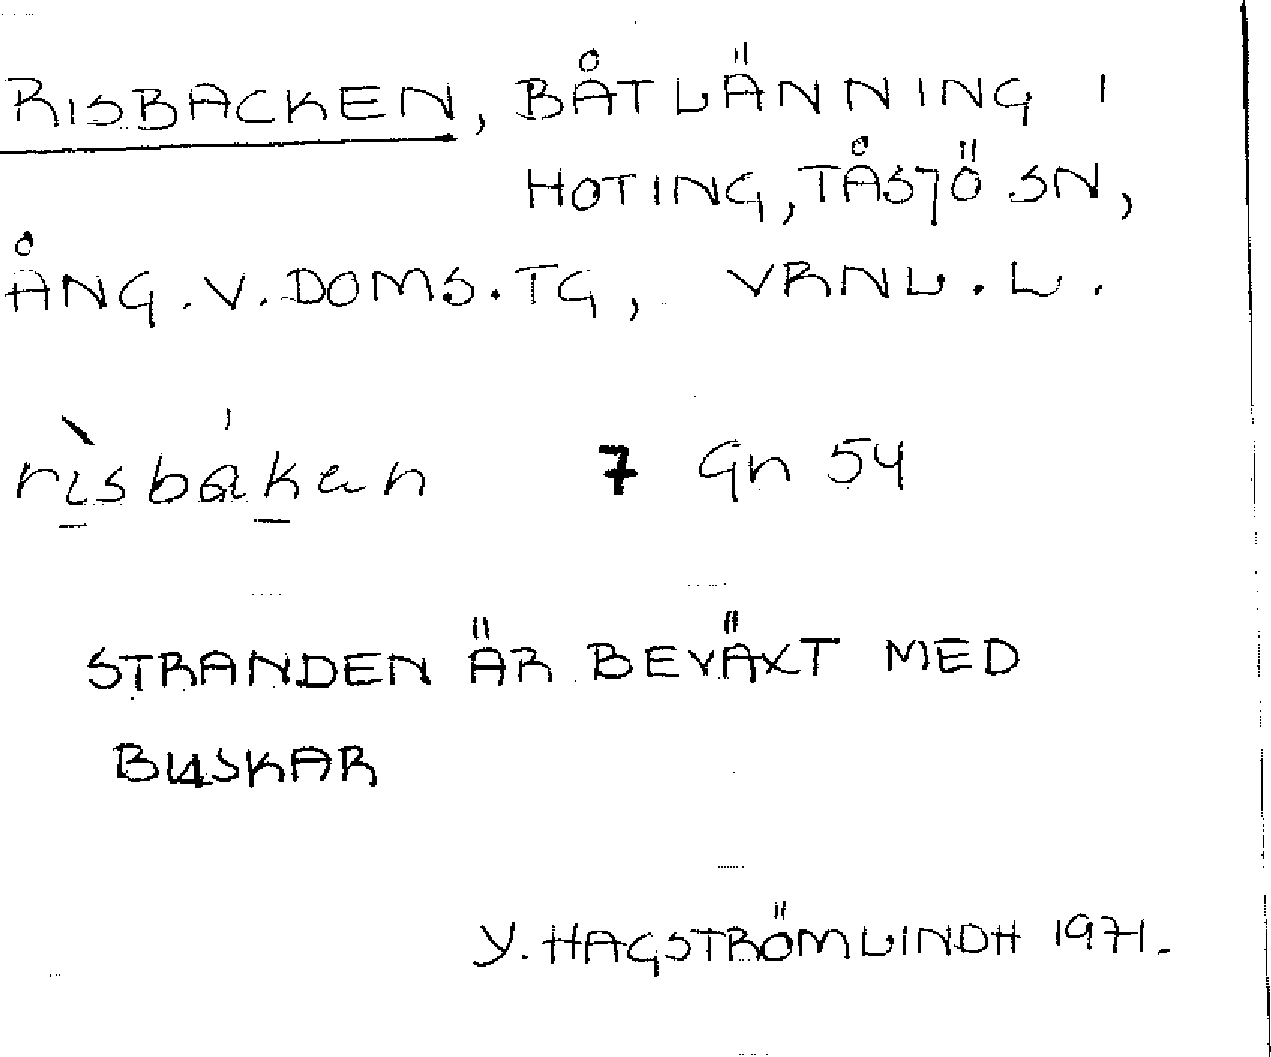 RISBACKEN, BÅTLÄNNING I
HOTING, TÅSJÖ SN,
ÅNG. V. DOMS. TG, VRNL. L.
rìsbákan 7 Gn 54
STRANDEN ÄR BEVÄXT MED
BUSKAR
Y. HAGSTRÖMLINDH 1971.